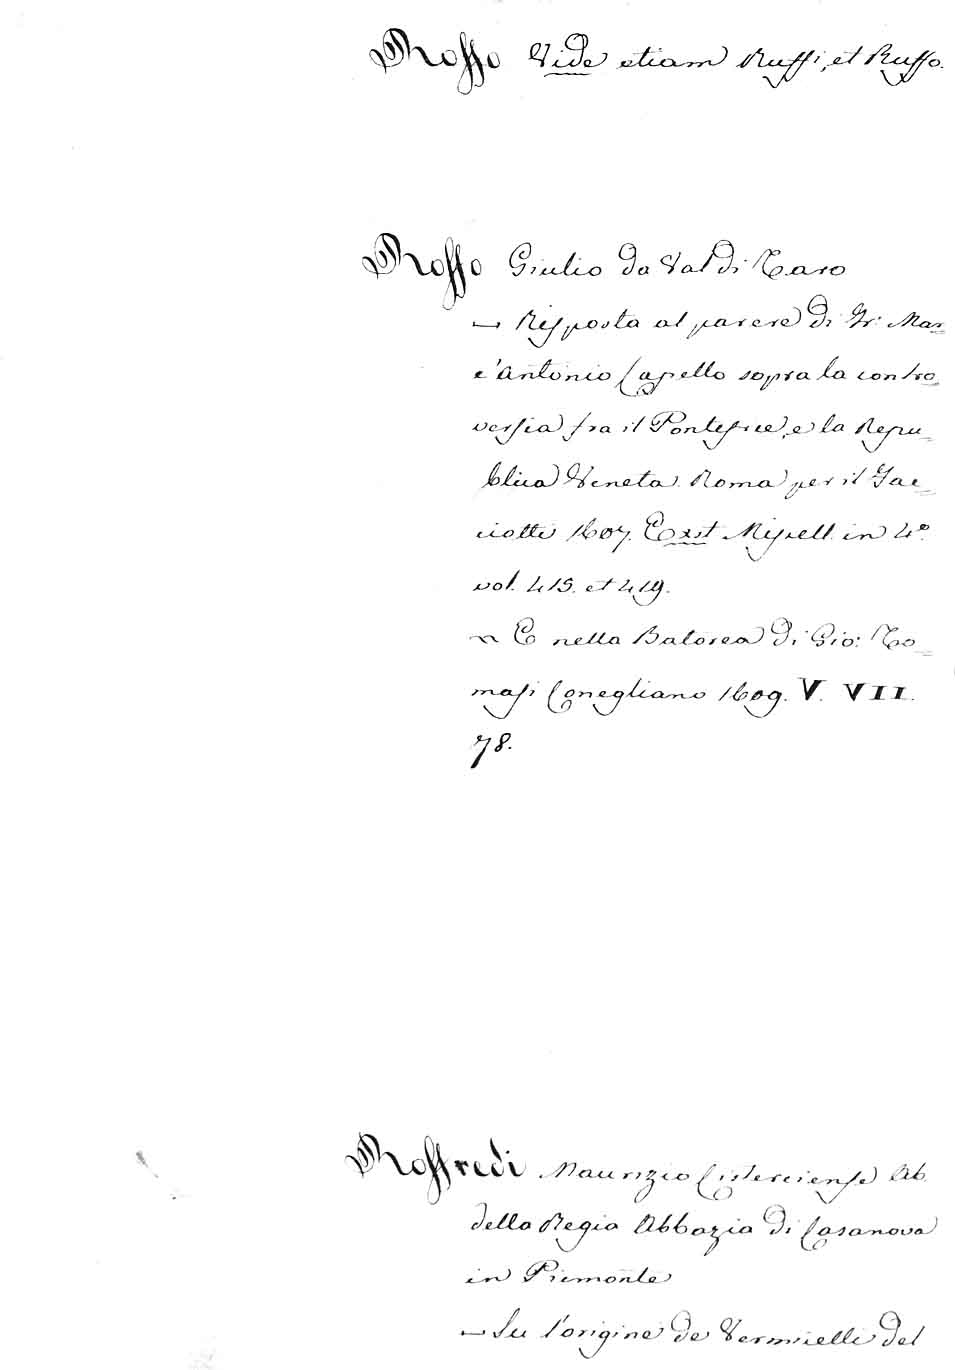 Roffo Vide etiam Ruffi, et Ruffo.
Roffo Giulio da Val di Taro
— Risposta al parere di Fr: Mar=
c'Antonio Capello sopra la contro=
versia fra il Pontefice, e la Repu=
blica Veneta. Roma per il Fac=
ciotti 1607. Exst Miscell. in 4.º
vol. 415. et 419.
~ E nella Batorea di Gio: To=
masi Conegliano 1609. V. VII.
78.
Roffredi Maurizio Cisterciense Ab.
della Regia Abbazia di Casanova
in Piemonte
— Su l'origine de Vermicelli del